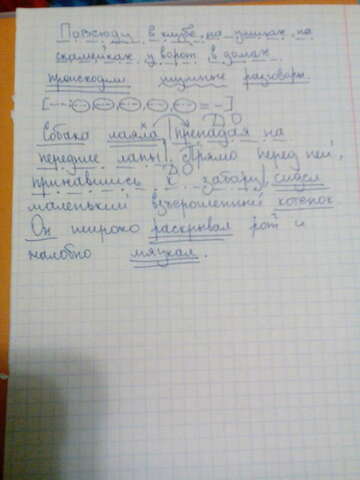 Повсюду в клубе, на улицах, на
скамейках у ворот, в домах
происходили шумные разговоры.
Собака лаяла, припадая на
передние лапы. Прямо перед ней,
прижавшись к забору, сидел
маленький взъерошенный котенок
Он широко раскрывал рот и
жалобно мяукал.